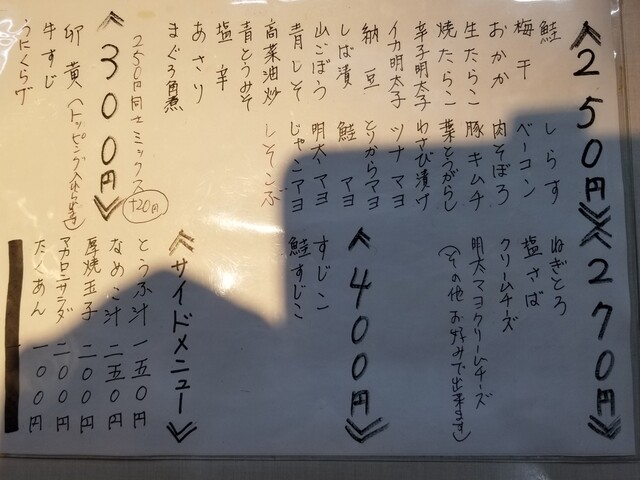 ≪250円≫
鮭
梅干
おかか
生たらこ
焼たらこ
辛子明太子
イカ明太子
納豆
しば漬
山ごぼう
青じそ
高菜油炒
青とうみそ
塩辛
あさり
まぐろ角煮
しらす
ベーコン
肉そぼろ
豚キムチ
葉とうがらし
わさび漬け
ツナマヨ
とりからマヨ
鮭マヨ
明太マヨ
じゃこマヨ
しそこぶ
250円同士ミックス +20円
≪300円≫
卵黄(トッピング入り出来ます)
牛すじ
うにくらげ
≪270円≫
ねぎとろ
塩さば
クリームチーズ
明太マヨクリームチーズ
(その他お好みで出来ます)
≪400円≫
すじこ
鮭すじこ
≪サイドメニュー≫
とうふ汁 一五〇円
なめこ汁 二五〇円
厚焼玉子 二〇〇円
マカロニサラダ 二〇〇円
たくあん 一〇〇円